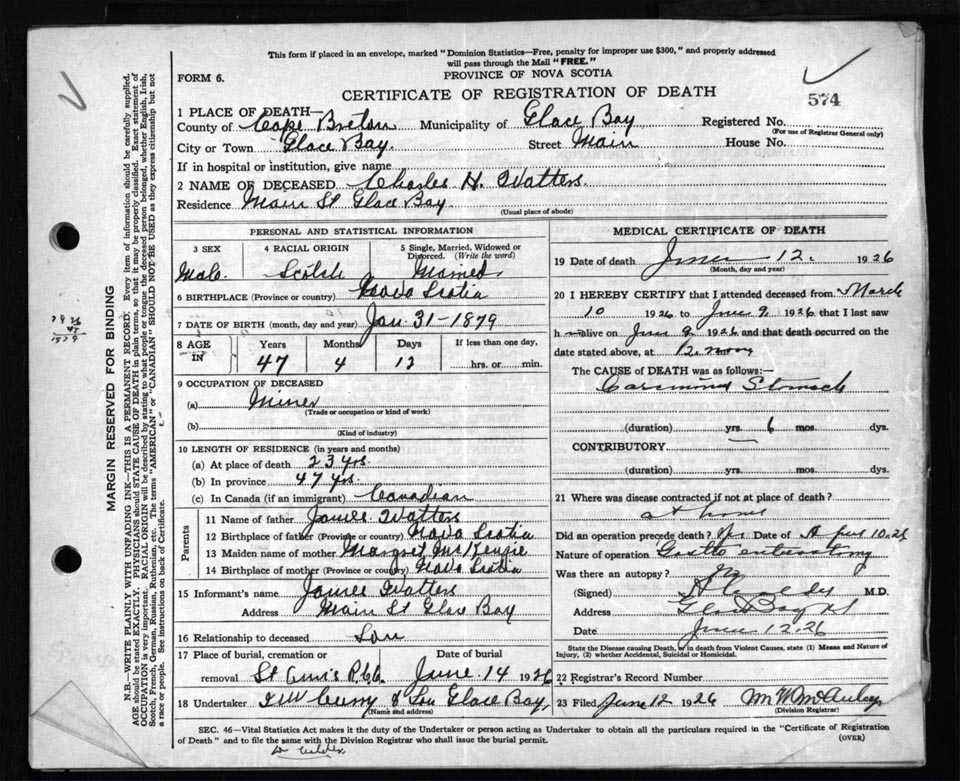 This form if placed in an envelope, marked "Dominion Statistics—Free, penalty for improper use $300," and properly addressed
will pass through the Mail "FREE."
FORM 6.
PROVINCE OF NOVA SCOTIA
CERTIFICATE OF REGISTRATION OF DEATH
574
1 PLACE OF DEATH—
County of Cape Breton Municipality of Glace Bay Registered No.
(For use of Registrar General only)
City or Town Glace Bay. Street Main House No.
If in hospital or institution, give name
2 NAME OF DECEASED Charles H. Watters.
Residence Main St Glace Bay.
(Usual place of abode)
PERSONAL AND STATISTICAL INFORMATION
3 SEX 4 RACIAL ORIGIN 5 Single, Married, Widowed or
Divorced. (Write the word)
Male. Scotch Married
6 BIRTHPLACE (Province or country) Nova Scotia
7 DATE OF BIRTH (month, day and year) Jan 31-1879
8 AGE IN Years Months Days If less than one day,
47 4 12 hrs. or min.
9 OCCUPATION OF DECEASED
(a) Miner
(Trade or occupation or kind of work)
(b)
(Kind of industry)
10 LENGTH OF RESIDENCE (in years and months)
(a) At place of death 23 yrs.
(b) In province 47 yrs.
(c) In Canada (if an immigrant) Canadian
Parents
11 Name of father James Watters
12 Birthplace of father (Province or country) Nova Scotia
13 Maiden name of mother Margret McKenzie
14 Birthplace of mother (Province or country) Nova Scotia
15 Informant's name James Watters
Address Main St Glace Bay
16 Relationship to deceased Son
17 Place of burial, cremation or Date of burial
removal St Ann's June 14 1926
18 Undertaker & Son Glace Bay
(Name and address)
MEDICAL CERTIFICATE OF DEATH
19 Date of death June 12. 1926
(Month, day and year)
20 I HEREBY CERTIFY that I attended deceased from March
10 1926 to June 9 1926 that I last saw
h alive on June 9 1926 and that death occurred on
date stated above, at
The CAUSE of DEATH was as follows:—
Carcinoma Stomach
(duration) yrs. 6 mos. dys.
CONTRIBUTORY
(duration) yrs. mos. dys.
21 Where was disease contracted if not at place of death?
at home
Did an operation precede death? Yes Date of 10.26
Nature of operation Gastro enterostomy
Was there an autopsy? No
(Signed) M.D.
Address Glace Bay NS
Date June 12.26
State the Disease causing Death, or in death from Violent Causes, state (1) Means and Nature of
Injury, (2) whether Accidental, Suicidal or Homicidal.
22 Registrar's Record Number
23 Filed June 12 1926
(Division Registrar)
SEC. 46—Vital Statistics Act makes it the duty of the Undertaker or person acting as Undertaker to obtain all the particulars required in the "Certificate of Registration
of Death" and to file the same with the Division Registrar who shall issue the burial permit.
(OVER)
MARGIN RESERVED FOR BINDING
N.B.—WRITE PLAINLY WITH UNFADING INK—THIS IS A PERMANENT RECORD. Every item of information should be carefully supplied.
AGE should be stated EXACTLY. PHYSICIANS should STATE CAUSE OF DEATH in plain terms, so that it may be properly classified. Exact statement of
OCCUPATION is very important. RACIAL ORIGIN will be described by stating to what people or tongue the deceased person belonged, whether English, Irish,
Scotch, French, German, Russian, Ruthenian, etc. The terms "AMERICAN" or "CANADIAN" SHOULD NOT BE USED as they express citizenship but not
a race or people. See instructions on back of Certificate.